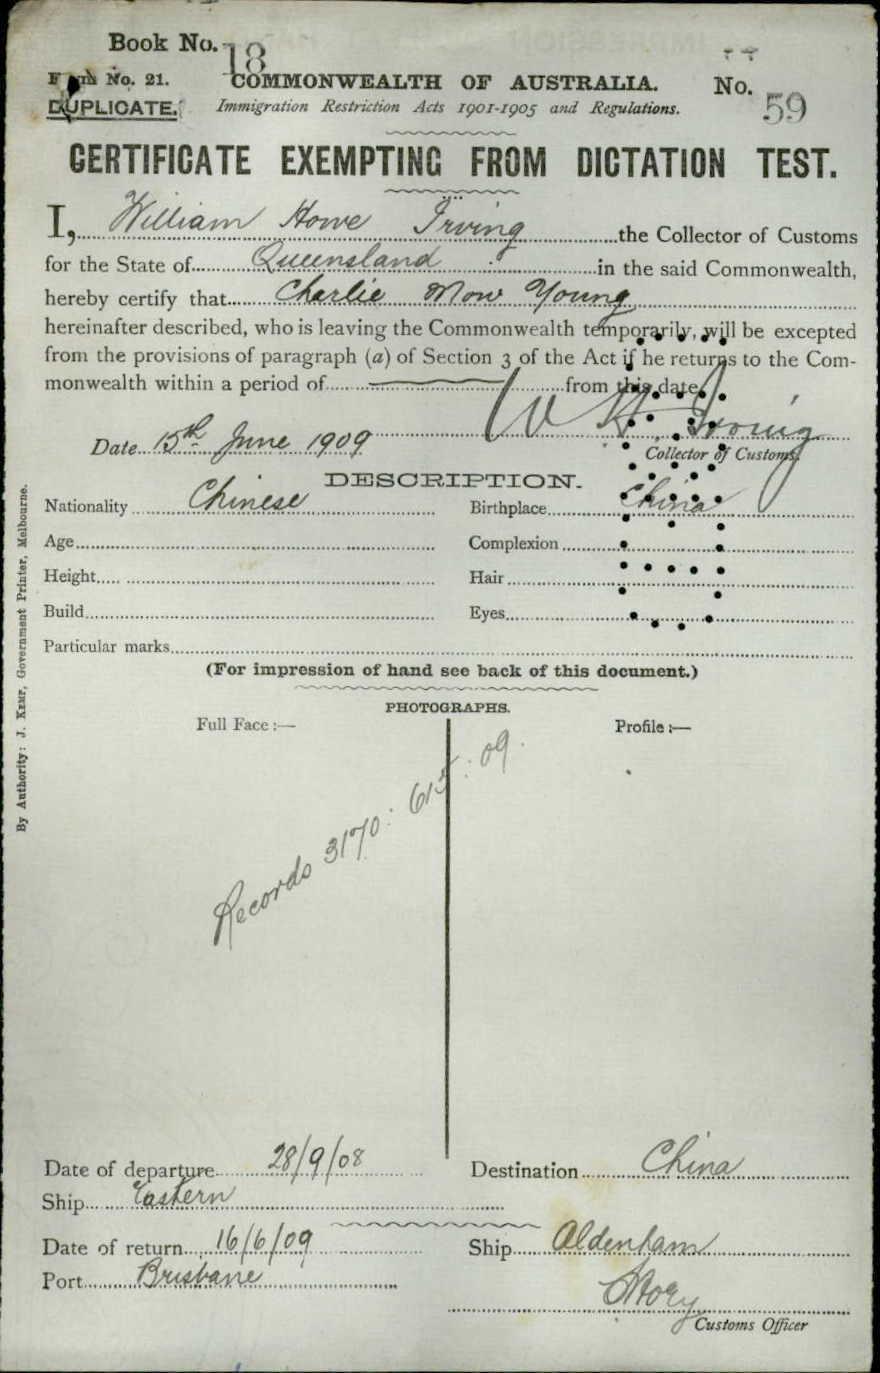 Book No. 18
Form No. 21.
COMMONWEALTH OF AUSTRALIA.
No. 59
DUPLICATE.
Immigration Restriction Acts 1901-1905 and Regulations.
CERTIFICATE EXEMPTING FROM DICTATION TEST.
I, William Howe Irving the Collector of Customs
for the State of Queensland in the said Commonwealth,
hereby certify that Charlie Mow Young
hereinafter described, who is leaving the Commonwealth temporarily, will be excepted
from the provisions of paragraph (a) of Section 3 of the Act if he returns to the Com-
monwealth within a period of from this date.
W H Irving
Date 15th June 1909
Collector of Customs.
DESCRIPTION.
Nationality Chinese Birthplace China
Age Complexion
Height Hair
Build Eyes
Particular marks
(For impression of hand see back of this document.)
PHOTOGRAPHS.
Full Face :— Profile :—
Records 3170: 615: 09.
Date of departure 28/9/08 Destination China
Ship Eastern
Date of return 16/6/09 Ship Aldenham
Port Brisbane
Customs Officer
By Authority: J. KEMP, Government Printer, Melbourne.